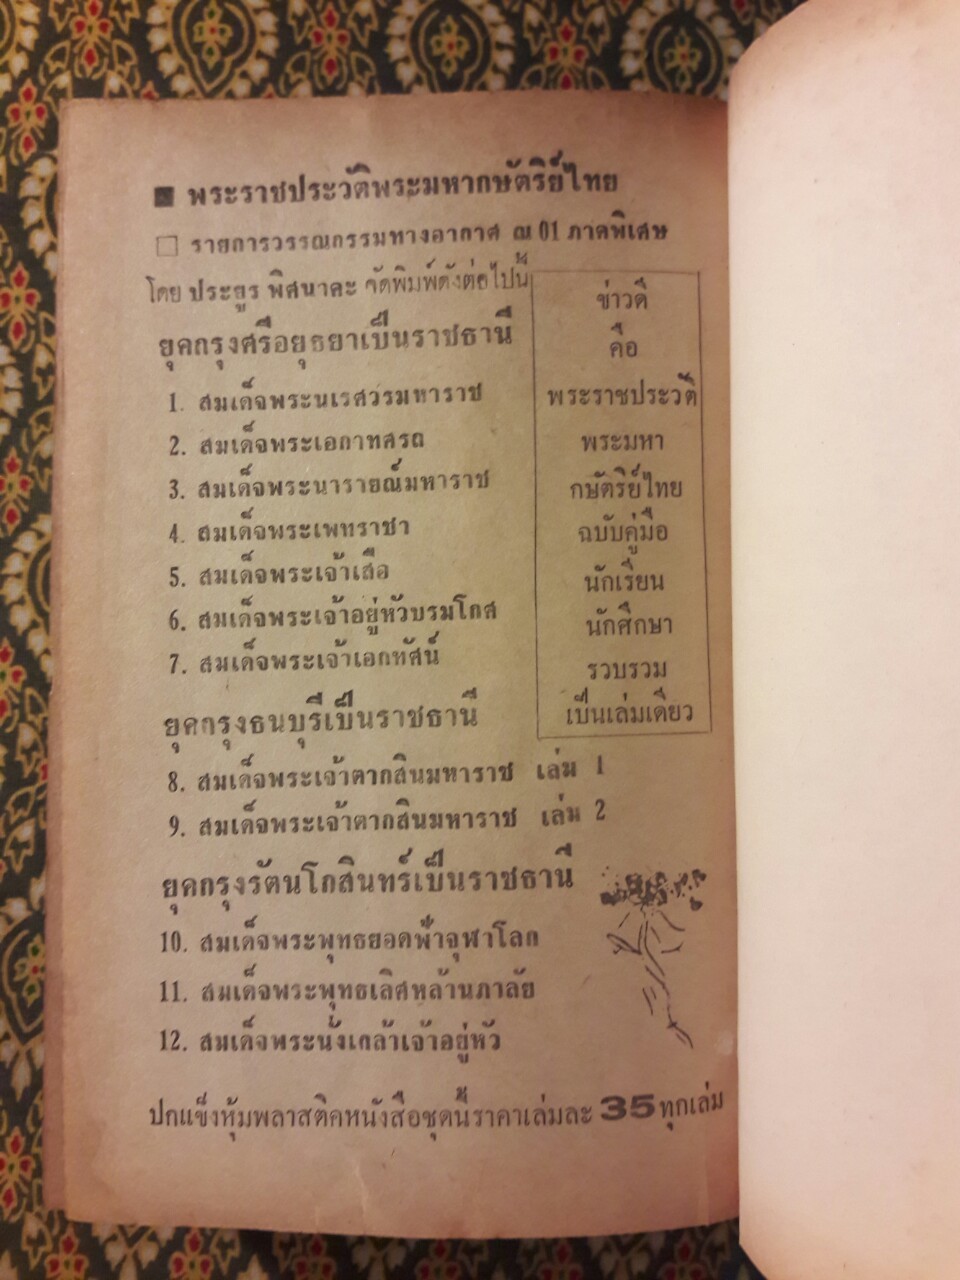 ■ พระราชประวัติพระมหากษัตริย์ไทย
□ รายการวรรณกรรมทางอากาศ ณ 01 ภาคพิเศษ
โดย ประยูร พิศนาคะ จัดพิมพ์ดังต่อไปนี้
ยุคกรุงศรีอยุธยาเป็นราชธานี
1. สมเด็จพระนเรศวรมหาราช
2. สมเด็จพระเอกาทศรถ
3. สมเด็จพระนารายณ์มหาราช
4. สมเด็จพระเพทราชา
5. สมเด็จพระเจ้าเสือ
6. สมเด็จพระเจ้าอยู่หัวบรมโกศ
7. สมเด็จพระเจ้าเอกทัศน์
ข่าวดี
คือ
พระราชประวัติ
พระมหา
กษัตริย์ไทย
ฉบับคู่มือ
นักเรียน
นักศึกษา
รวบรวม
เป็นเล่มเดียว
ยุคกรุงธนบุรีเป็นราชธานี
8. สมเด็จพระเจ้าตากสินมหาราช เล่ม 1
9. สมเด็จพระเจ้าตากสินมหาราช เล่ม 2
ยุคกรุงรัตนโกสินทร์เป็นราชธานี
10. สมเด็จพระพุทธยอดฟ้าจุฬาโลก
11. สมเด็จพระพุทธเลิศหล้านภาลัย
12. สมเด็จพระนั่งเกล้าเจ้าอยู่หัว
ปกแข็งหุ้มพลาสติคหนังสือชุดนี้ราคาเล่มละ 35 ทุกเล่ม